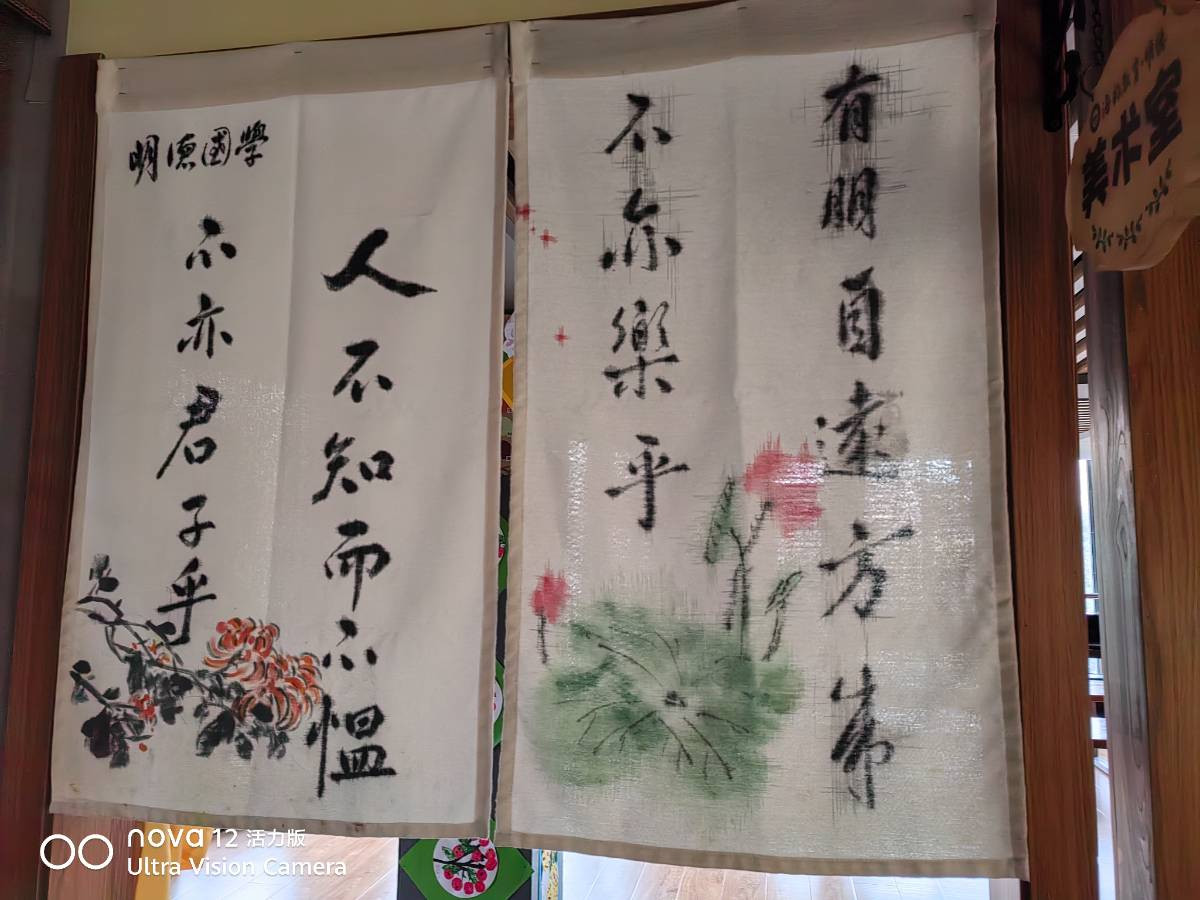 有朋自遠方来
不亦樂乎
人不知而不愠
不亦君子乎
明悳國學
美术室
nova 12 活力版
Ultra Vision Camera